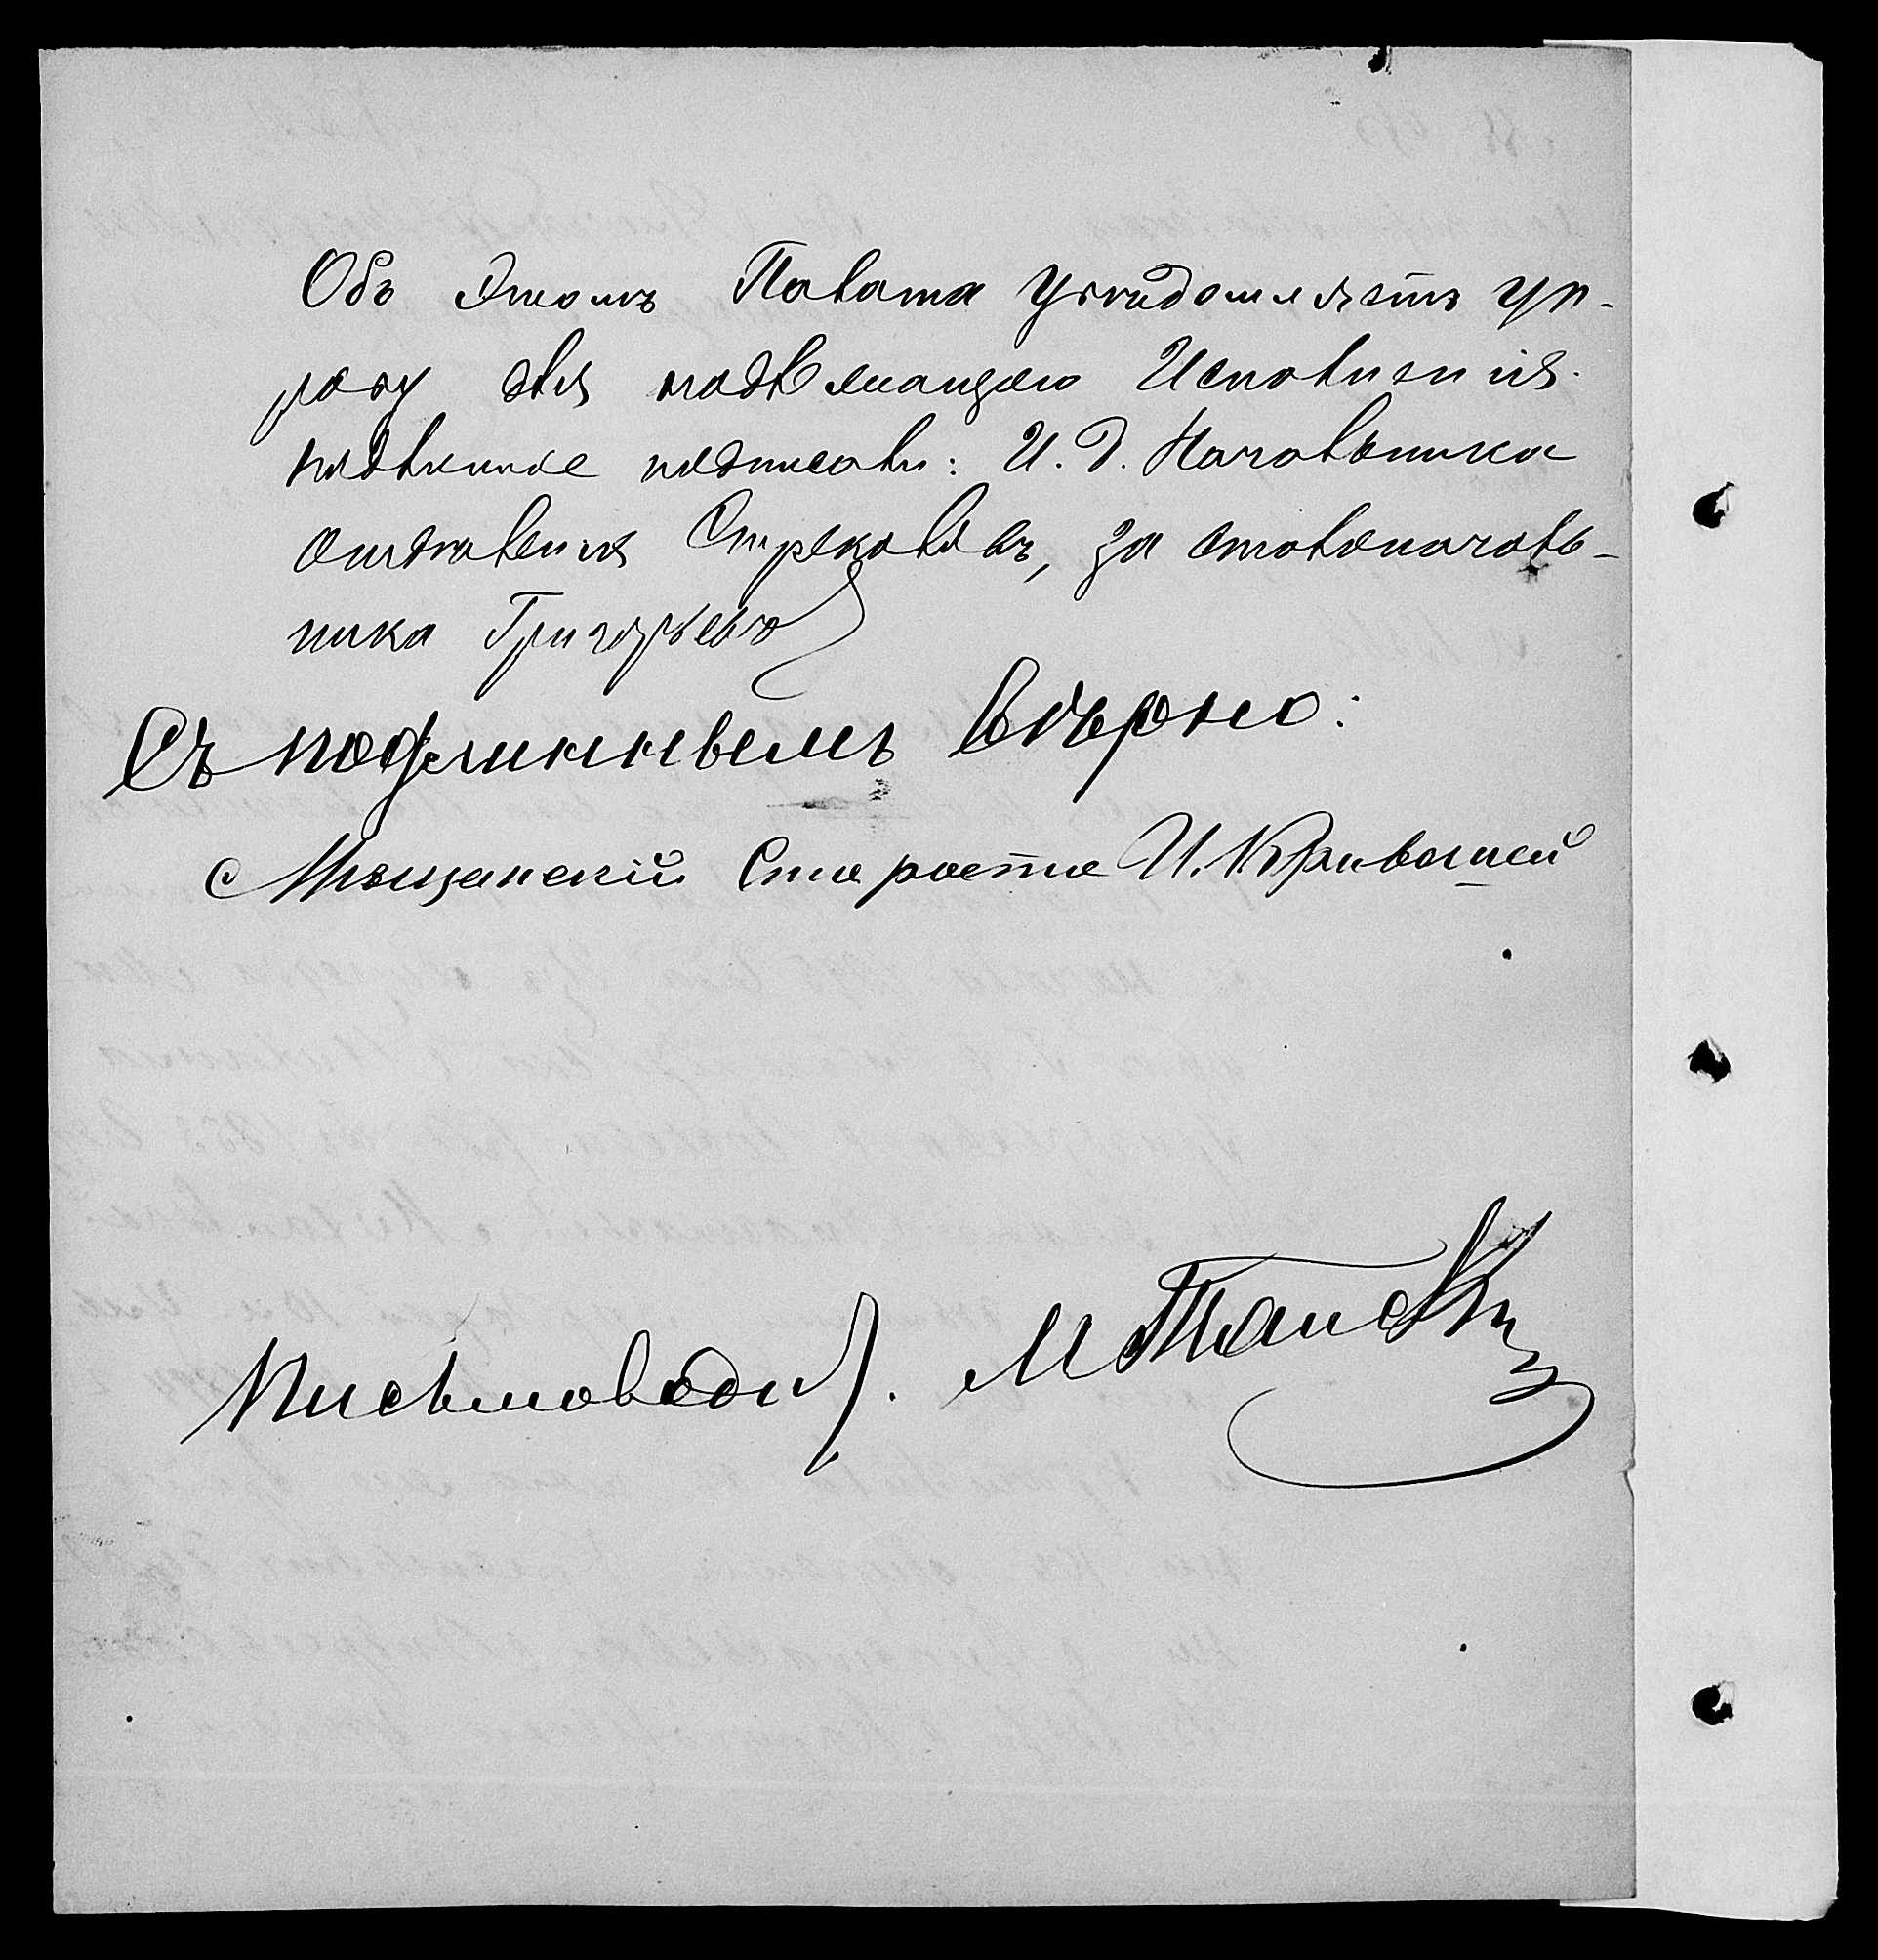 Объ этомъ Палата увѣдомляетъ Уп-
раву для надлежащаго Исполненія.
подлинное подписали: И. Д. Начальника
отдѣленія Стрековъ, за столоначаль-
ника Григорьевъ
Съ подлиннымъ вѣрно:
Мѣщанскій Староста И.
Письмоводит.